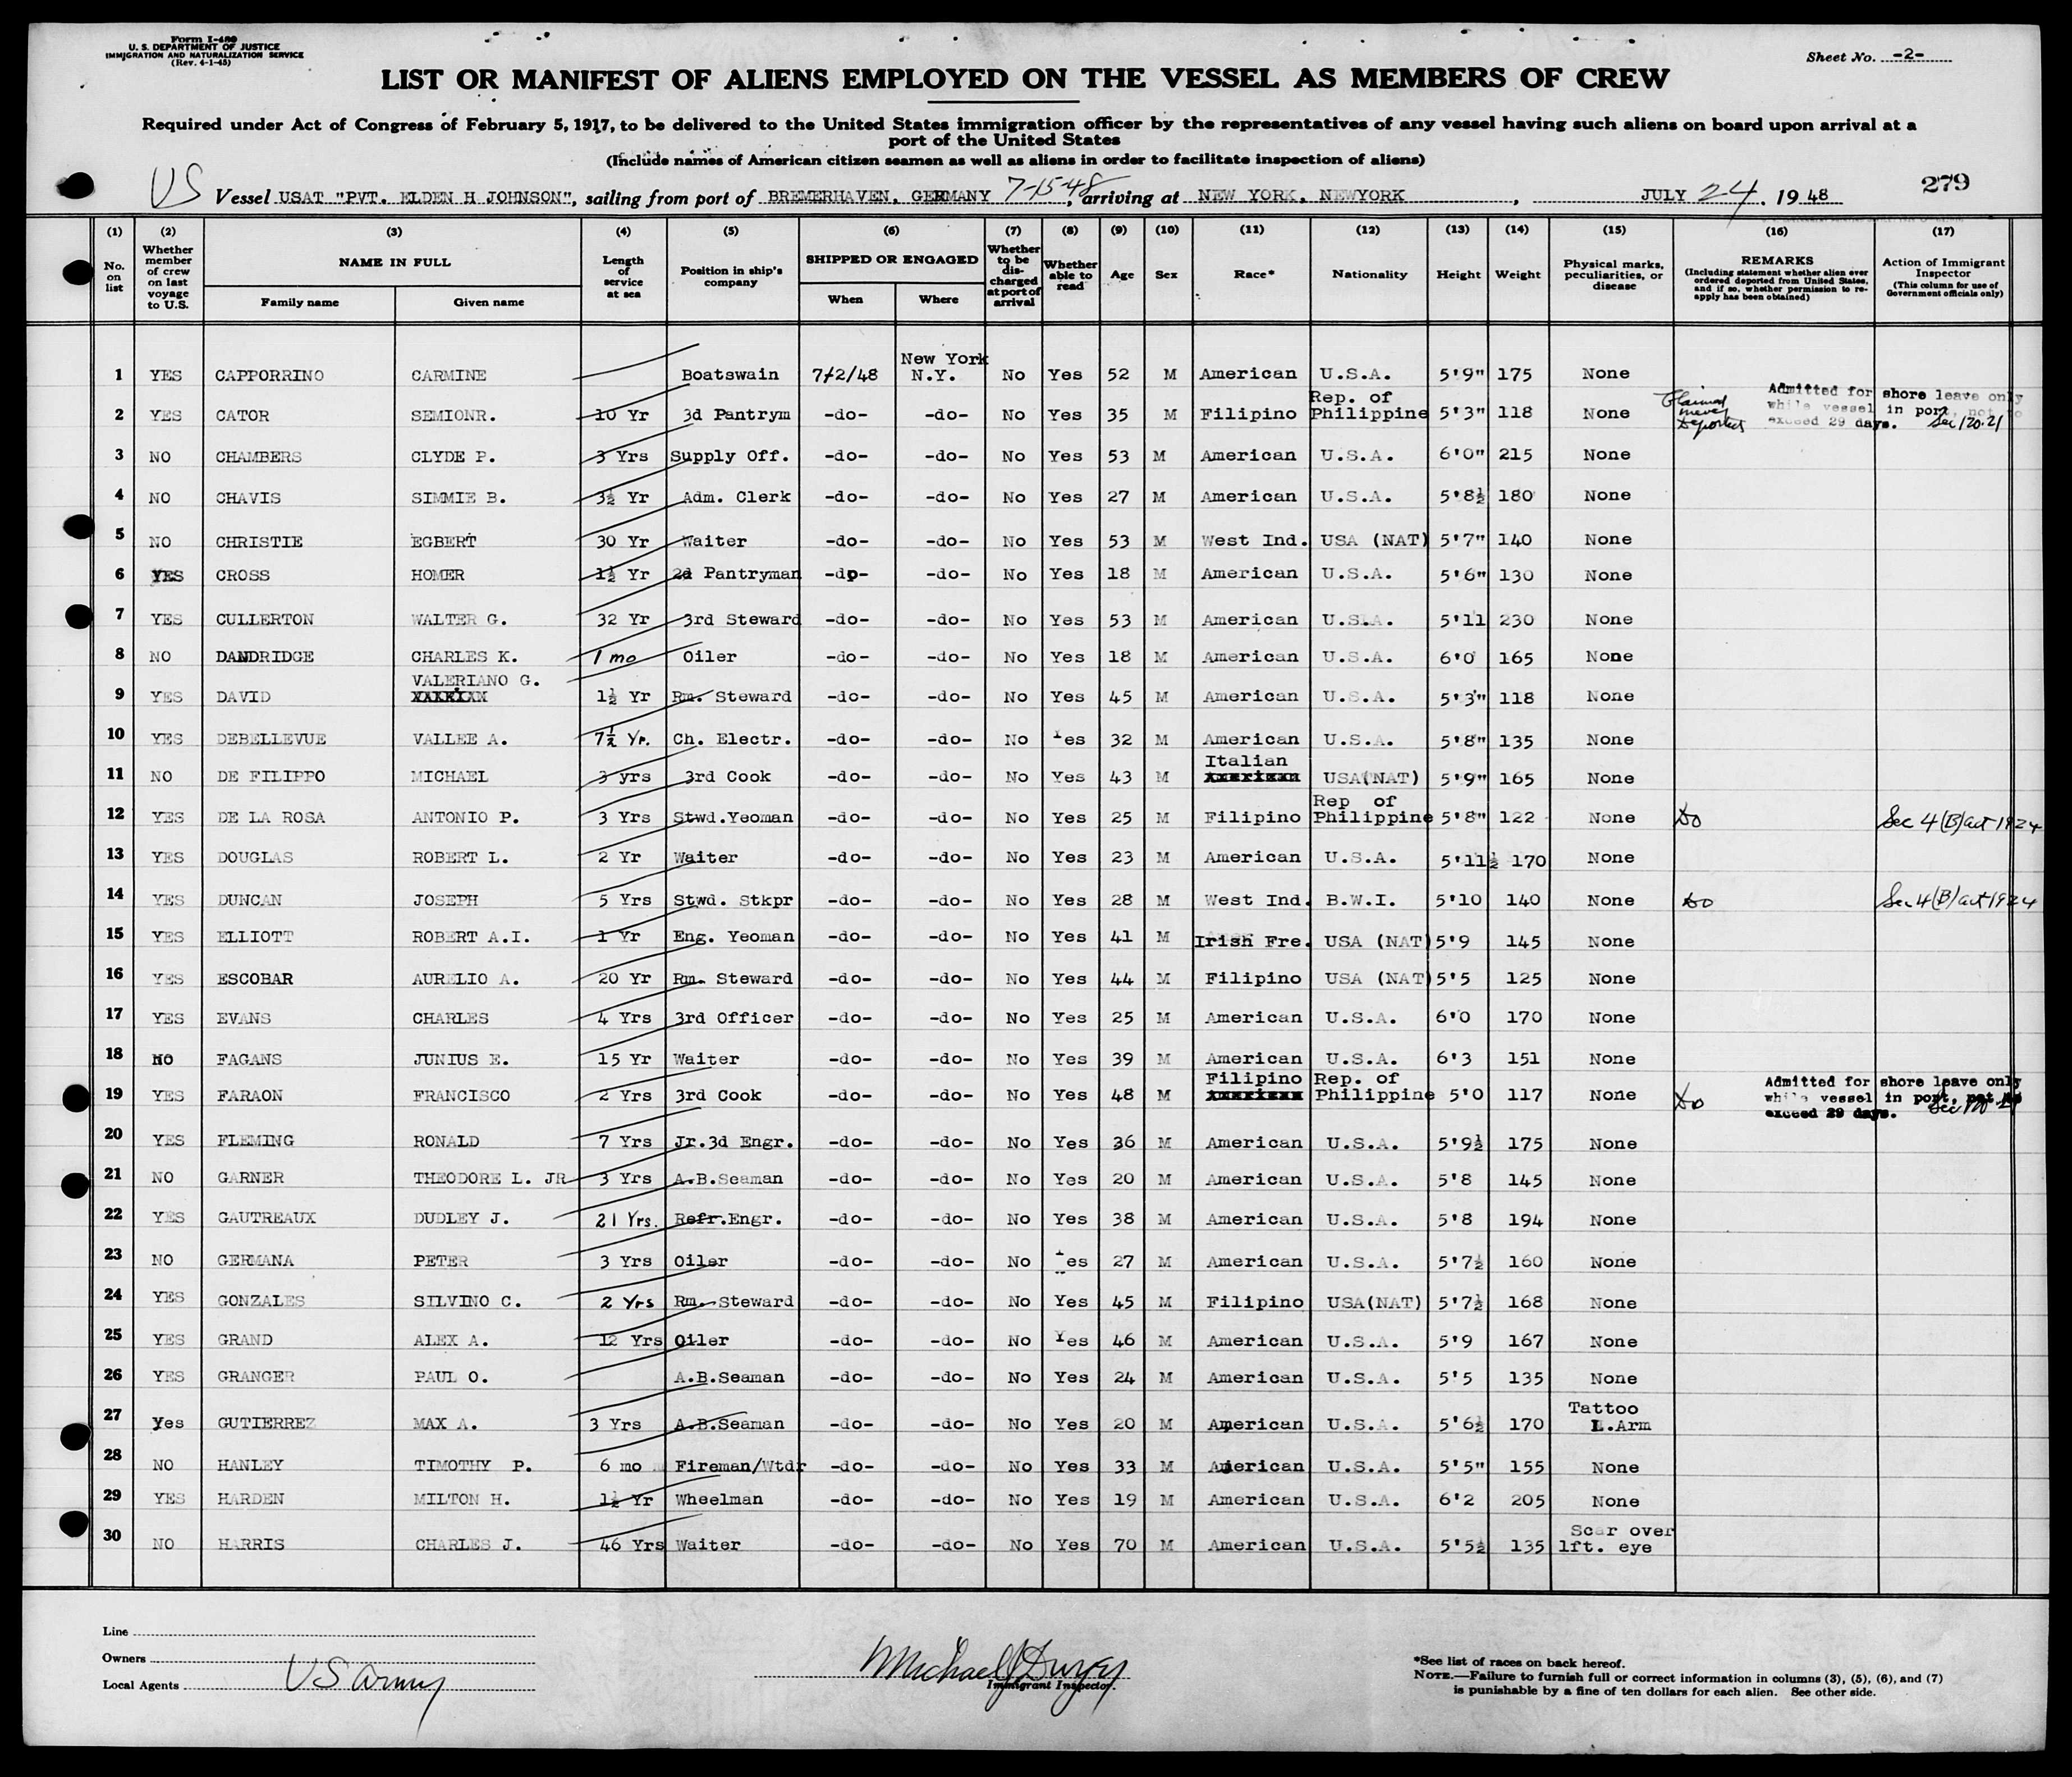 Form I-480
U. S. DEPARTMENT OF JUSTICE
IMMIGRATION AND NATURALIZATION SERVICE
(Rev. 4-1-45)
Sheet No. -2-
LIST OR MANIFEST OF ALIENS EMPLOYED ON THE VESSEL AS MEMBERS OF CREW
Required under Act of Congress of February 5, 1917, to be delivered to the United States immigration officer by the representatives of any vessel having such aliens on board upon arrival at a
port of the United States
(Include names of American citizen seamen as well as aliens in order to facilitate inspection of aliens)
US Vessel USAT "PVT. ELDEN H JOHNSON", sailing from port of BREMERHAVEN, GERMANY 7-15-48, arriving at NEW YORK, NEWYORK, JULY 24, 1948
279
(1) No. on list (2) Whether member of crew on last voyage to U.S. (3) NAME IN FULL Family name Given name (4) Length of service at sea (5) Position in ship's company (6) SHIPPED OR ENGAGED When Where (7) Whether to be discharged at port of arrival (8) Whether able to read (9) Age (10) Sex (11) Race* (12) Nationality (13) Height (14) Weight (15) Physical marks, peculiarities, or disease (16) REMARKS (Including statement whether alien ever ordered deported from United States, and if so, whether permission to re-apply has been obtained) (17) Action of Immigrant Inspector (This column for use of Government officials only)
1 YES CAPPORRINO CARMINE Boatswain 7/2/48 New York N.Y. No Yes 52 M American U.S.A. 5'9" 175 None
2 YES CATOR SEMIONR. 10 Yr 3d Pantrym -do- -do- No Yes 35 M Filipino Rep. of Philippine 5'3" 118 None Claimed never Deported Admitted for shore leave only while vessel in port, not to exceed 29 days. Sec 120.21
3 NO CHAMBERS CLYDE P. 3 Yrs Supply Off. -do- -do- No Yes 53 M American U.S.A. 6'0" 215 None
4 NO CHAVIS SIMMIE B. 3½ Yr Adm. Clerk -do- -do- No Yes 27 M American U.S.A. 5'8½ 180 None
5 NO CHRISTIE EGBERT 30 Yr Waiter -do- -do- No Yes 53 M West Ind. USA (NAT) 5'7" 140 None
6 YES CROSS HOMER 1½ Yr 2d Pantryman -do- -do- No Yes 18 M American U.S.A. 5'6" 130 None
7 YES CULLERTON WALTER G. 32 Yr 3rd Steward -do- -do- No Yes 53 M American U.S.A. 5'11 230 None
8 NO DANDRIDGE CHARLES K. 1 mo Oiler -do- -do- No Yes 18 M American U.S.A. 6'0 165 None
9 YES DAVID VALERIANO G. 1½ Yr Rm. Steward -do- -do- No Yes 45 M American U.S.A. 5'3" 118 None
10 YES DEBELLEVUE VALLEE A. 7½ Yr. Ch. Electr. -do- -do- No Yes 32 M American U.S.A. 5'8" 135 None
11 NO DE FILIPPO MICHAEL 3 yrs 3rd Cook -do- -do- No Yes 43 M Italian USA(NAT) 5'9" 165 None
12 YES DE LA ROSA ANTONIO P. 3 Yrs Stwd.Yeoman -do- -do- No Yes 25 M Filipino Rep of Philippine 5'8" 122 None do Sec 4(B) act 1924
13 YES DOUGLAS ROBERT L. 2 Yr Waiter -do- -do- No Yes 23 M American U.S.A. 5'11½ 170 None
14 YES DUNCAN JOSEPH 5 Yrs Stwd. Stkpr -do- -do- No Yes 28 M West Ind. B.W.I. 5'10 140 None do Sec 4(B) act 1924
15 YES ELLIOTT ROBERT A.I. 1 Yr Eng. Yeoman -do- -do- No Yes 41 M Irish Fre. USA (NAT) 5'9 145 None
16 YES ESCOBAR AURELIO A. 20 Yr Rm. Steward -do- -do- No Yes 44 M Filipino USA (NAT) 5'5 125 None
17 YES EVANS CHARLES 4 Yrs 3rd Officer -do- -do- No Yes 25 M American U.S.A. 6'0 170 None
18 NO FAGANS JUNIUS E. 15 Yr Waiter -do- -do- No Yes 39 M American U.S.A. 6'3 151 None
19 YES FARAON FRANCISCO 2 Yrs 3rd Cook -do- -do- No Yes 48 M Filipino Rep. of Philippine 5'0 117 None do Admitted for shore leave only while vessel in port, not to exceed 29 days. Sec 120.21
20 YES FLEMING RONALD 7 Yrs Jr.3d Engr. -do- -do- No Yes 36 M American U.S.A. 5'9½ 175 None
21 NO GARNER THEODORE L. JR 3 Yrs A.B.Seaman -do- -do- No Yes 20 M American U.S.A. 5'8 145 None
22 YES GAUTREAUX DUDLEY J. 21 Yrs. Refr.Engr. -do- -do- No Yes 38 M American U.S.A. 5'8 194 None
23 NO GERMANA PETER 3 Yrs Oiler -do- -do- No Yes 27 M American U.S.A. 5'7½ 160 None
24 YES GONZALES SILVINO C. 2 Yrs Rm. Steward -do- -do- No Yes 45 M Filipino USA(NAT) 5'7½ 168 None
25 YES GRAND ALEX A. 12 Yrs Oiler -do- -do- No Yes 46 M American U.S.A. 5'9 167 None
26 YES GRANGER PAUL O. A.B.Seaman -do- -do- No Yes 24 M American U.S.A. 5'5 135 None
27 Yes GUTIERREZ MAX A. 3 Yrs A.B.Seaman -do- -do- No Yes 20 M American U.S.A. 5'6½ 170 Tattoo L.Arm
28 NO HANLEY TIMOTHY P. 6 mo Fireman/Wtdr -do- -do- No Yes 33 M American U.S.A. 5'5" 155 None
29 YES HARDEN MILTON H. 1½ Yr Wheelman -do- -do- No Yes 19 M American U.S.A. 6'2 205 None
30 NO HARRIS CHARLES J. 46 Yrs Waiter -do- -do- No Yes 70 M American U.S.A. 5'5½ 135 Scar over lft. eye
Line
Owners
Local Agents US Army
Michael J Dwyer
Immigrant Inspector.
*See list of races on back hereof.
NOTE.—Failure to furnish full or correct information in columns (3), (5), (6), and (7)
is punishable by a fine of ten dollars for each alien. See other side.